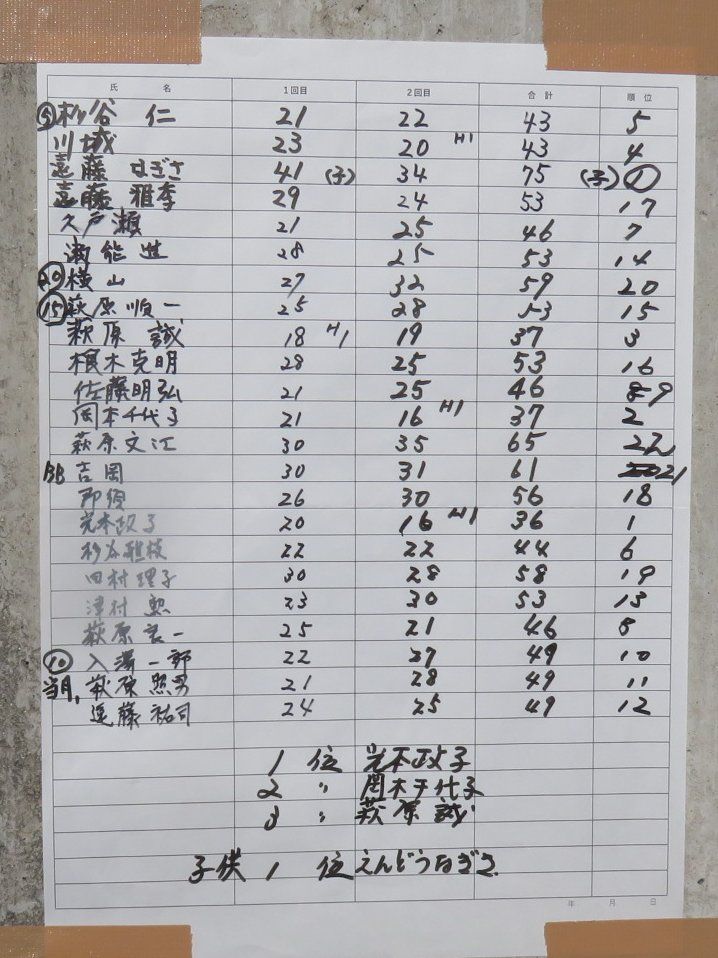 氏 名 1回目 2回目 合計 順位
⑤ 杉谷 仁 21 22 43 5
川城 23 20 H1 43 4
遠藤 なぎさ 41 (子) 34 75 (子) ①
遠藤 雅季 29 24 53 17
久戸瀬 21 25 46 7
瀬能 進 28 25 53 14
⑳ 横山 27 32 59 20
⑮ 萩原順一 25 28 53 15
萩原 誠 18 H1 19 37 3
根木克明 28 25 53 16
佐藤明弘 21 25 46 9
岡本千代子 21 16 H1 37 2
萩原文江 30 35 65 22
BB 吉岡 30 31 61 21
26 30 56 18
光本政子 20 16 H1 36 1
杉谷雅枝 22 22 44 6
田村理子 30 28 58 19
津村 勲 23 30 53 13
萩原良一 25 21 46 8
⑩ 入澤一郎 22 27 49 10
当月, 萩原照男 21 28 49 11
遠藤祐司 24 25 49 12
1 位 光本政子
2 〃 岡本千代子
3 〃 萩原 誠
子供 1 位 えんどうなぎさ
年 月 日